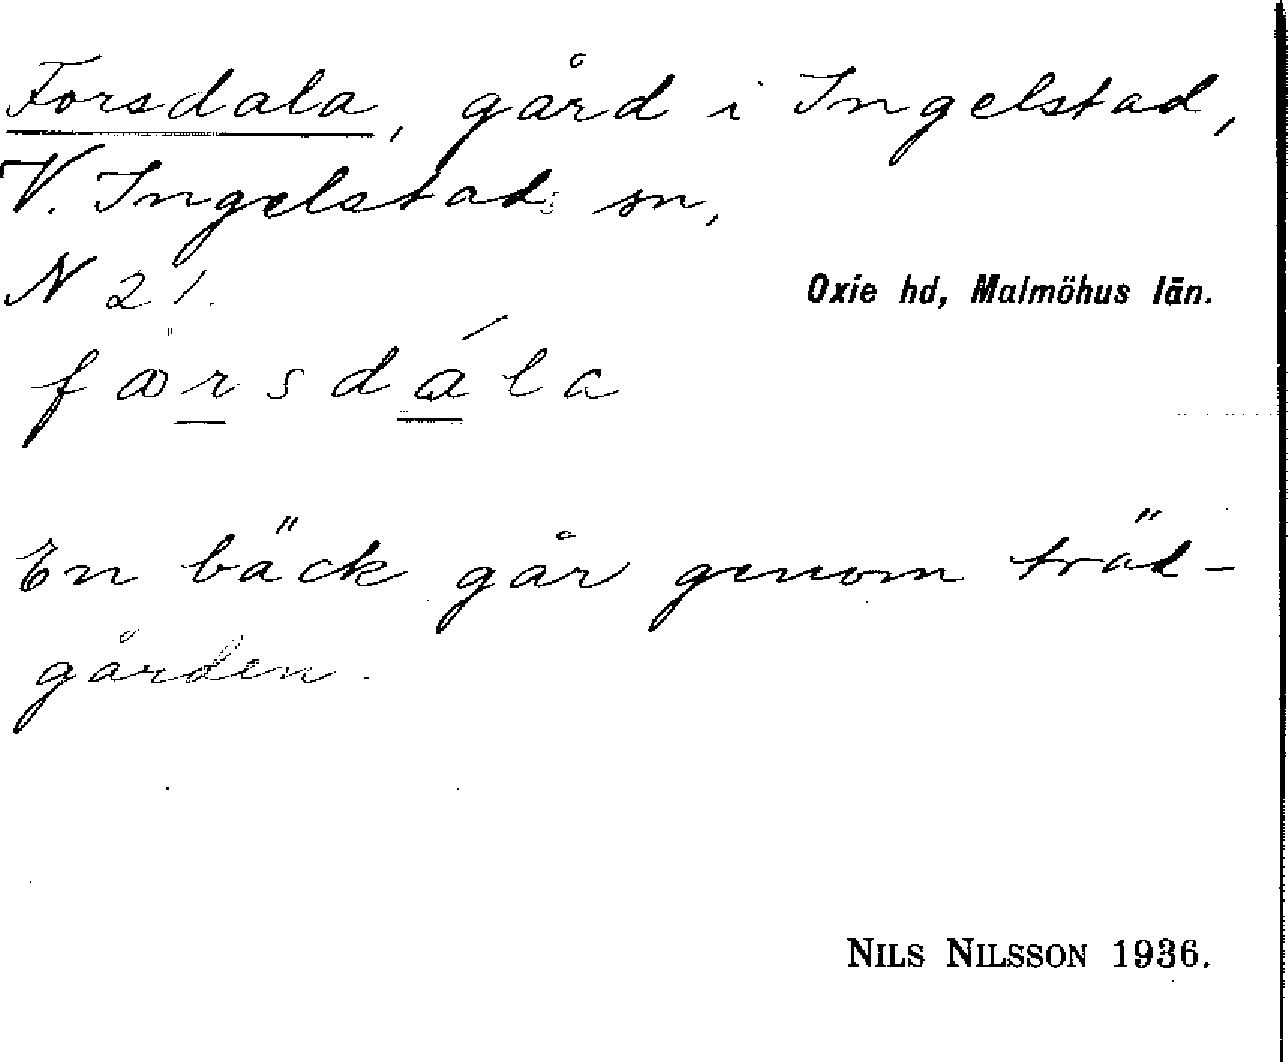 Forsdala, gård i Ingelstad,
V. Ingelstads sn,
N 21.
Oxie hd, Malmöhus län.
En bäck går genom träd-
gården.
NILS NILSSON 1936.